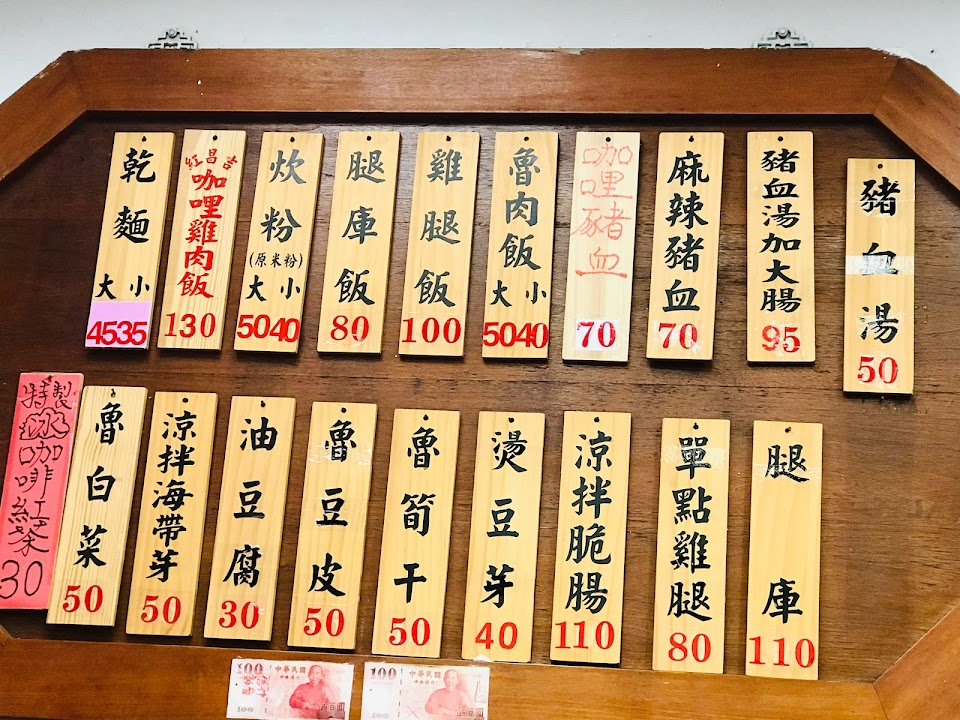 豬血湯
50
豬血湯加大腸
95
麻辣豬血
70
咖哩豬血
70
魯肉飯
大 小
50 40
雞腿飯
100
腿庫飯
80
炊粉
(原米粉)
大 小
50 40
紅昌吉
咖哩雞肉飯
130
乾麵
大 小
45 35
腿庫
110
單點雞腿
80
涼拌脆腸
110
燙豆芽
40
魯筍干
50
魯豆皮
50
油豆腐
30
涼拌海帶芽
50
魯白菜
50
特製
冰咖啡紅茶
30
100 中華民國
100
100 中華民國
100